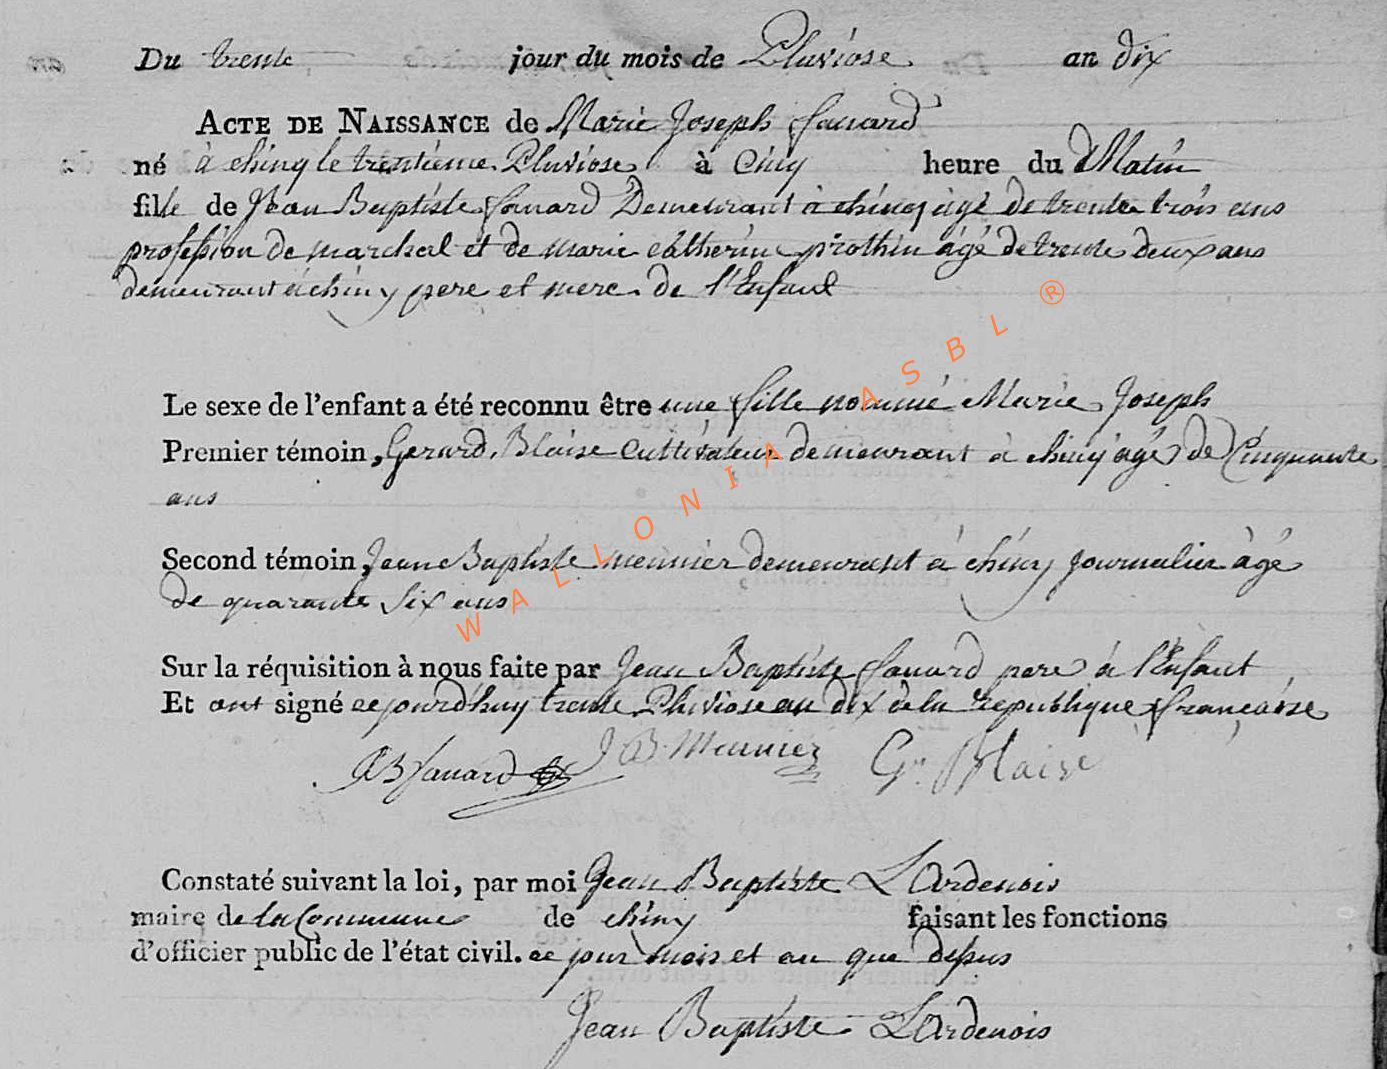 Du trente jour du mois de Pluviose an dix
ACTE DE NAISSANCE de Marie Joseph fouard
né à chiny le trentieme Pluviose à Cinq heure du Matin
fille de Jean Baptiste fouard Demeurant à chiny âgé de trente trois ans
profession de marchal et de marie catherine prothin âgé de trente deux ans
demeurant à chiny pere et mere de l'Enfant
Le sexe de l'enfant a été reconnu être une fille nommé Marie Joseph
Premier témoin, Gerard Blaise Cultivateur demeurant à chiny âgé de Cinquante
ans
Second témoin, Jean Baptiste meunier demeurant à chiny Journalier âgé
de quarante Six ans
Sur la réquisition à nous faite par Jean Baptiste fouard pere à l'Enfant
Et ont signé cejourdhuy trente Pluviose an dix de la republique française
JB fouard J B Meunier Gr. Blaise
Constaté suivant la loi, par moi Jean Baptiste LArdenois
maire de la Commune de chiny faisant les fonctions
d'officier public de l'état civil. ce jour mois et an que dessus
Jean Baptiste LArdenois
WALLONIA ASBL ®